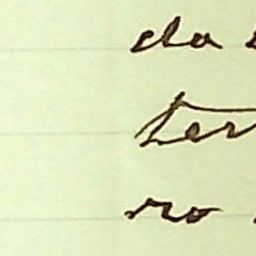 da
ter
ro